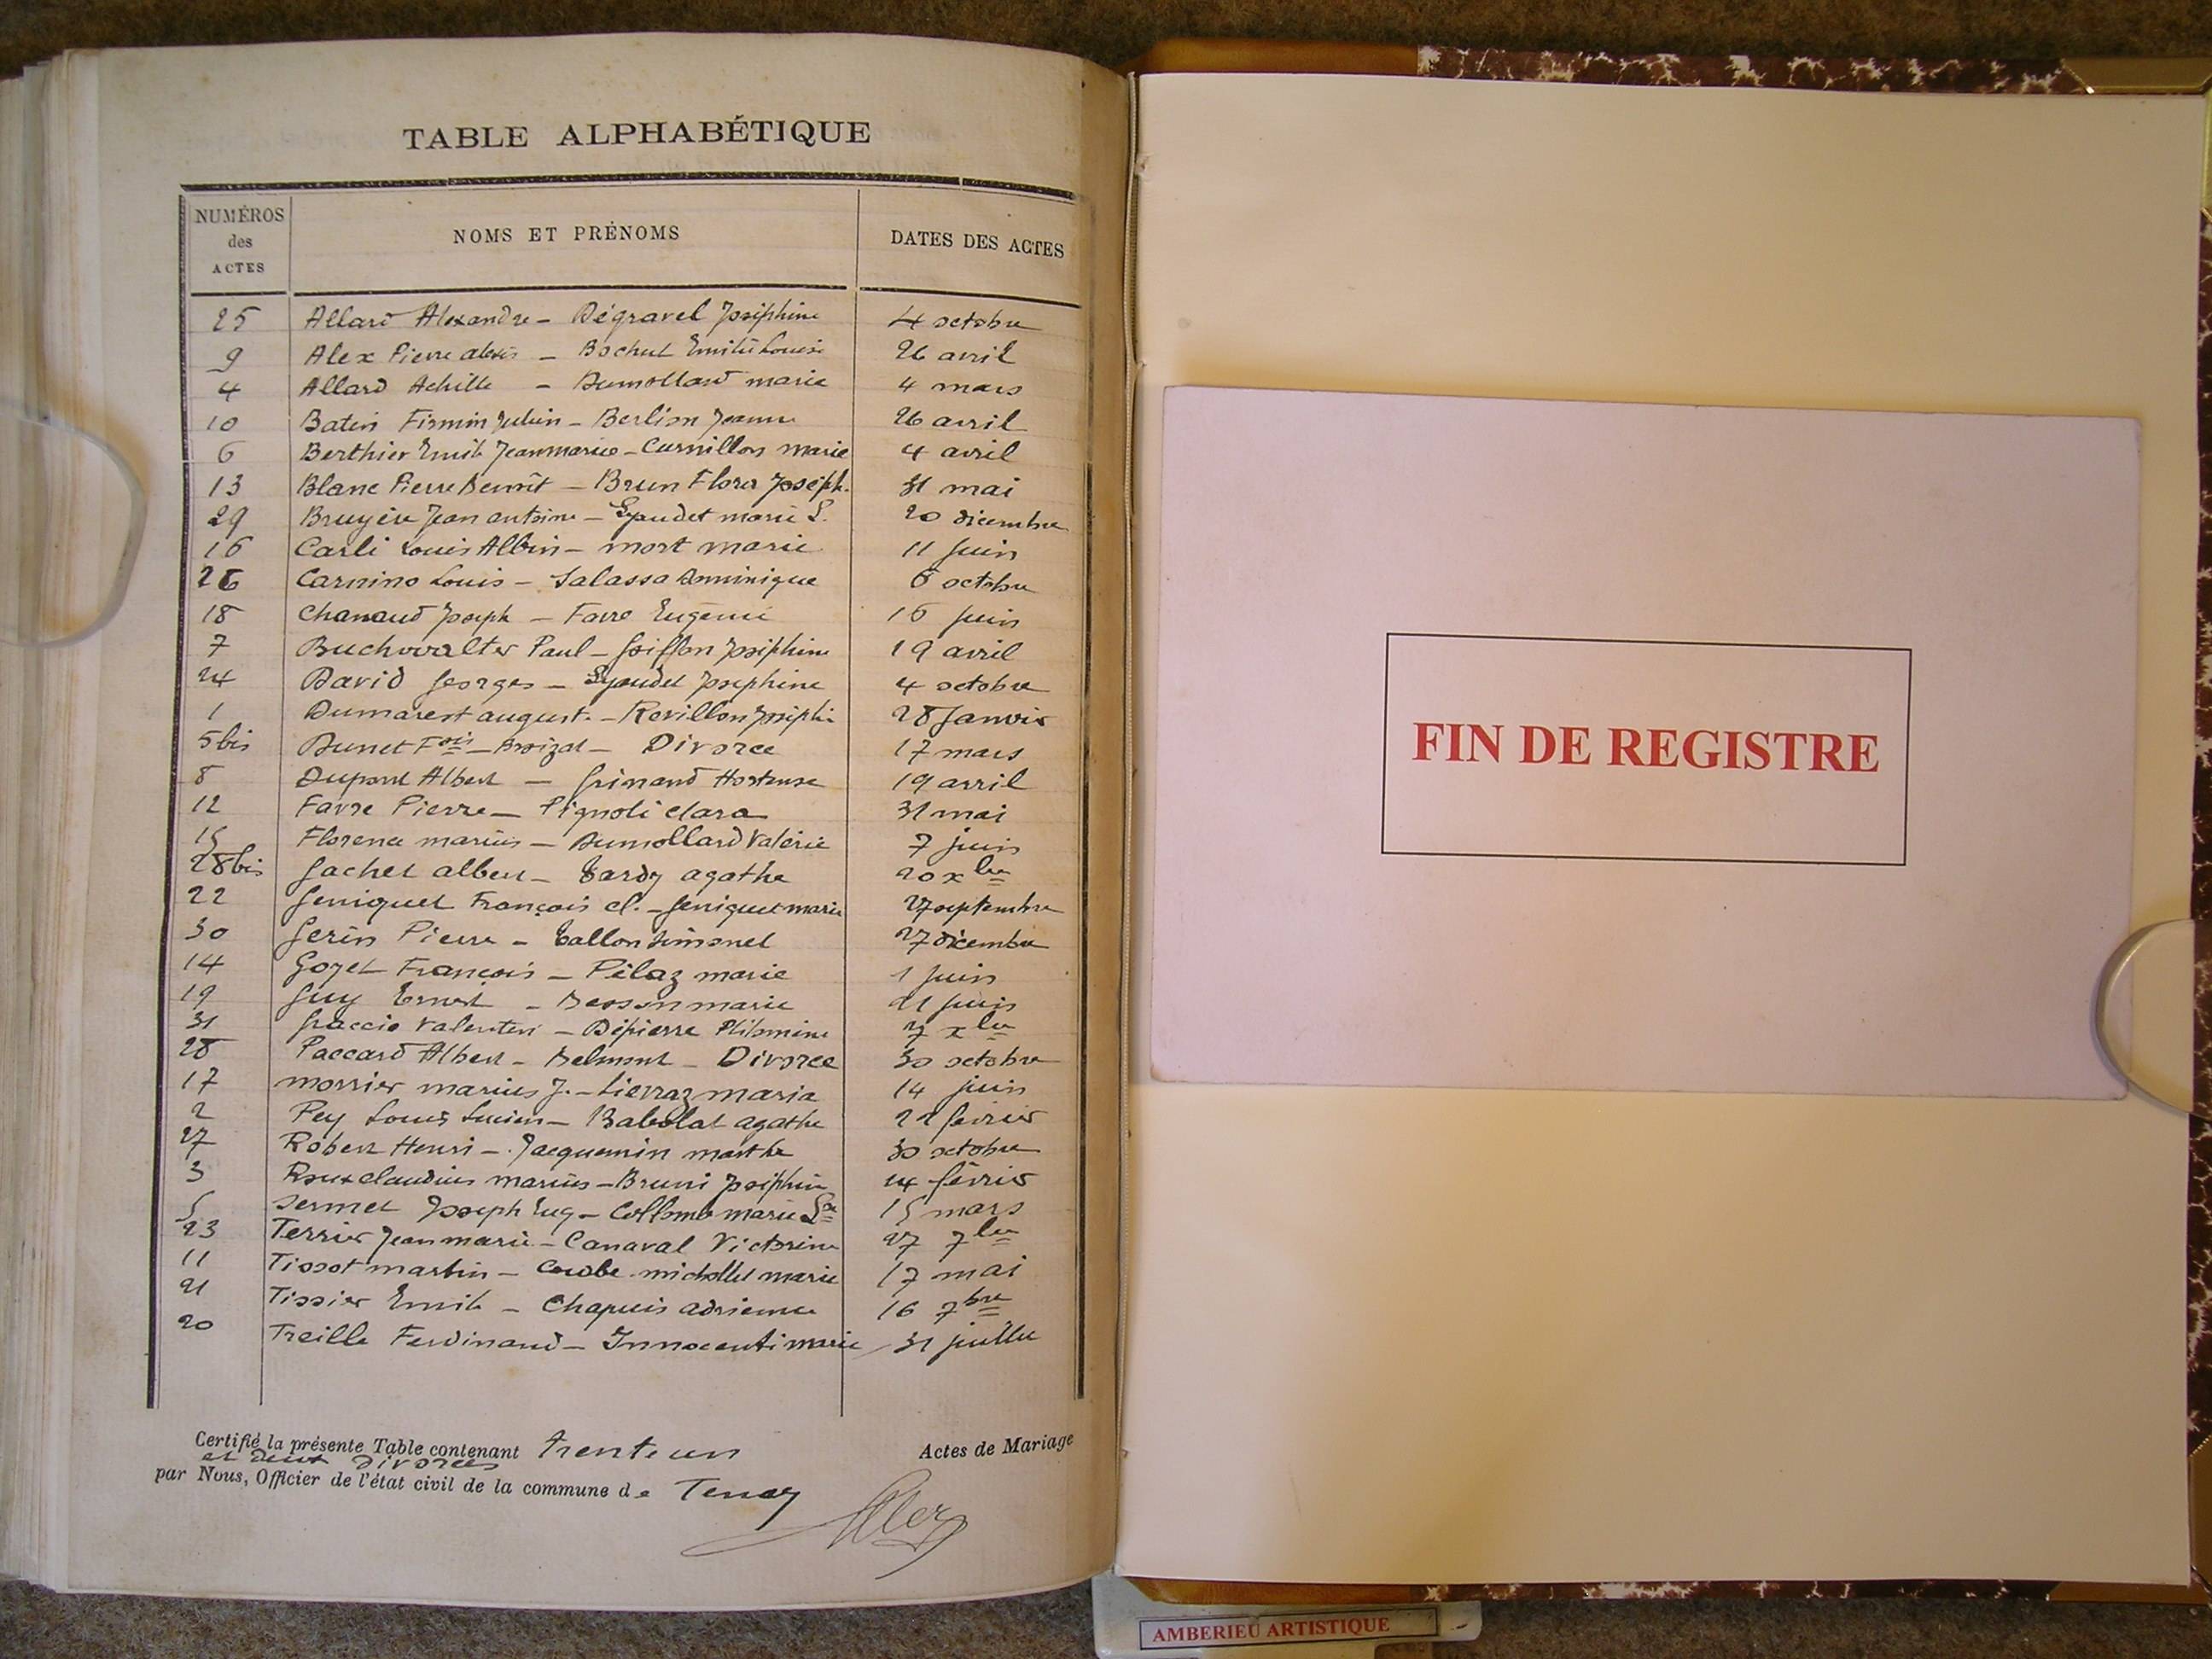 TABLE ALPHABÉTIQUE
NUMÉROS des ACTES
NOMS ET PRÉNOMS
DATES DES ACTES
25 Allard Alexandre - Dégravel Joséphine 4 octobre
9 Alex Pierre alexis - Bochut Louise 26 avril
4 Allard Achille - Dumollard marie 4 mars
10 Firmin Julien - Berlion Jeanne 26 avril
6 Berthier Emile Jeanmarie - Curnillon marie 4 avril
13 Blanc Pierre Benoît - Brun Flora Joseph. 31 mai
29 Bruyère Jean antoine - marie L. 20 décembre
16 Carli Louis Albin - mort marie 11 juin
26 Carnino Louis - Salassa Dominique 6 octobre
18 Chanaud Joseph - Favre Eugénie 16 juin
7 Buchwalter Paul - Goiffon Joséphine 19 avril
24 David Georges - Joséphine 4 octobre
1 Dumarest august. - Revillon Joséphi 28 Janvier
5 bis Dunet Fois - Broizat - Divorce 17 mars
8 Dupont Albert - Grinand Hortense 19 avril
12 Favre Pierre - Pignoli Clara 31 mai
15 Florence marius - Dumollard Valérie 7 juin
28 bis Gachet albert - Tardy agathe 20 xbre
22 Geniquet François cl. - Geniquet marie 27 septembre
30 Gerin Pierre - Tallon Simonel 27 décembre
14 Goyet François - Pélaz marie 1 juin
19 Guy Ernest - Besson marie 21 juin
31 Graccio Valentin - Dépierre Philomine xbre
28 Paccard Albert - Belmont - Divorce 30 octobre
17 morrier marius J. - Lierraz maria 14 juin
2 Pey Louis Lucien - Babolat agathe 22 février
27 Robert Henri - Jacquemin marthe 30 octobre
3 Roux claudius marius - Bruni Joséphin 24 février
5 Sermet Joseph Eug - Collomb marie Lse 15 mars
23 Terrier Jean marie - Canaval Victorine 27 7bre
11 Tissot martin - michollet marie 17 mai
21 Tissier Emile - Chapuis adrienne 16 7bre
20 Treille Ferdinand - Innocenti marie 31 juillet
Certifié la présente Table contenant trente un Actes de Mariage
et deux divorces
par Nous, Officier de l'état civil de la commune de Tenay
FIN DE REGISTRE
AMBERIEU ARTISTIQUE